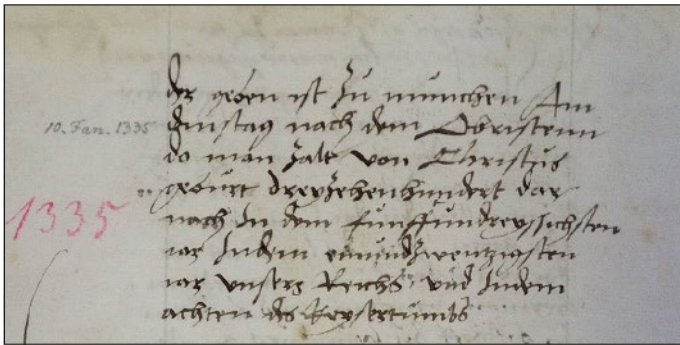 der geben ist zu munchen Am
10. Jan. 1335
dinstag nach dem Obristenn
do man zalt von Christus
geburt dreyzehenhundert dar
1335
nach In dem funffundreyssichsten
iar Indem ainundzwentzigsten
iar unsers Reichs und Indem
achten des keysertumbs